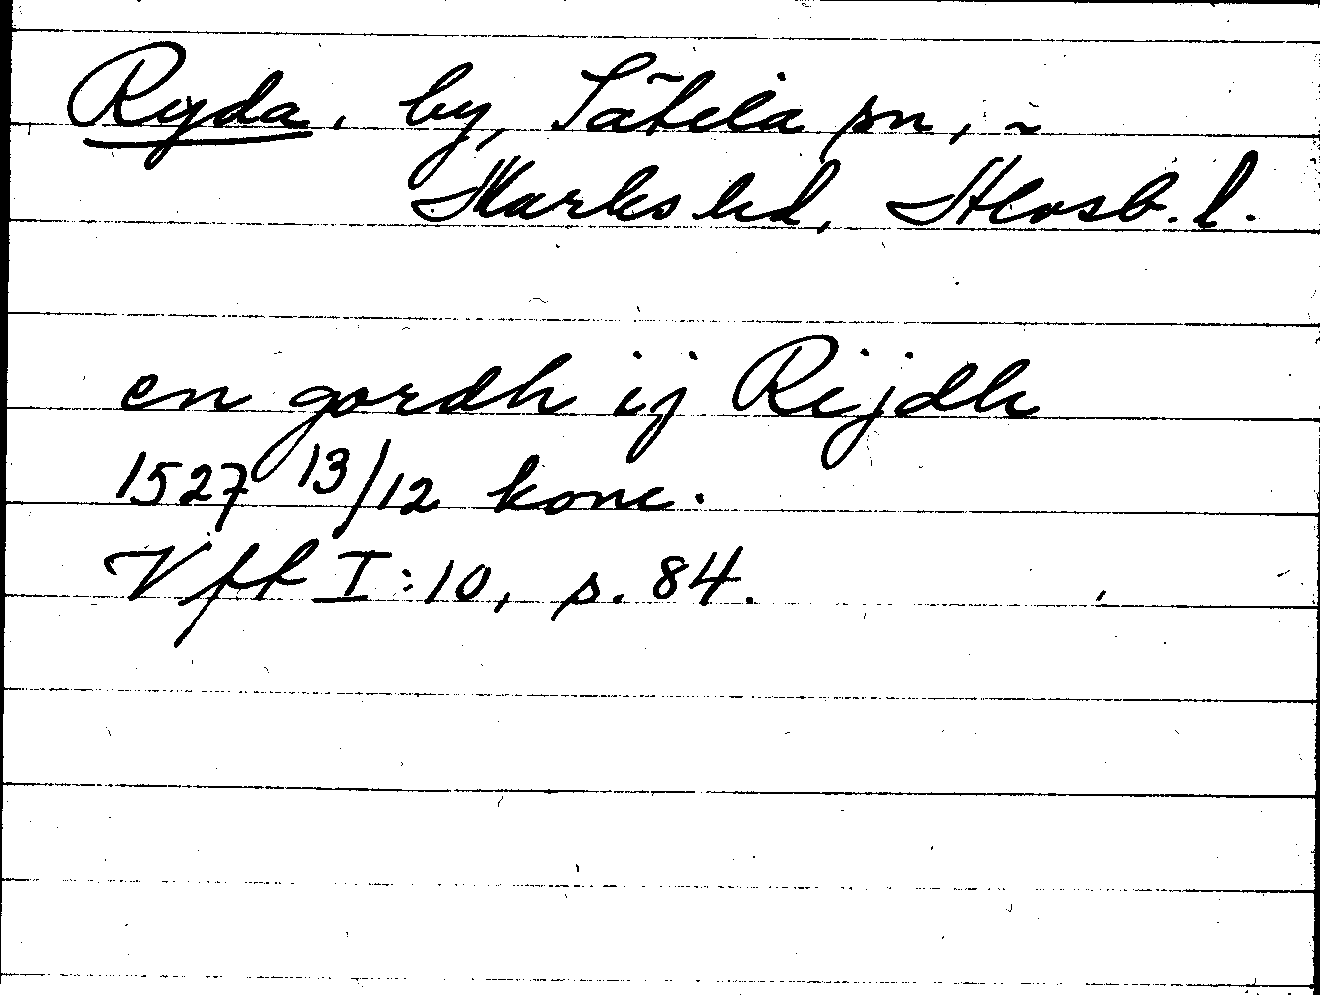 Ryda, by, Sãtila sn, ~
Marks hd, Älvsb. l.
en gordh ij Rijdh
1527 13/12 konc.
Vff I:10, s. 84.